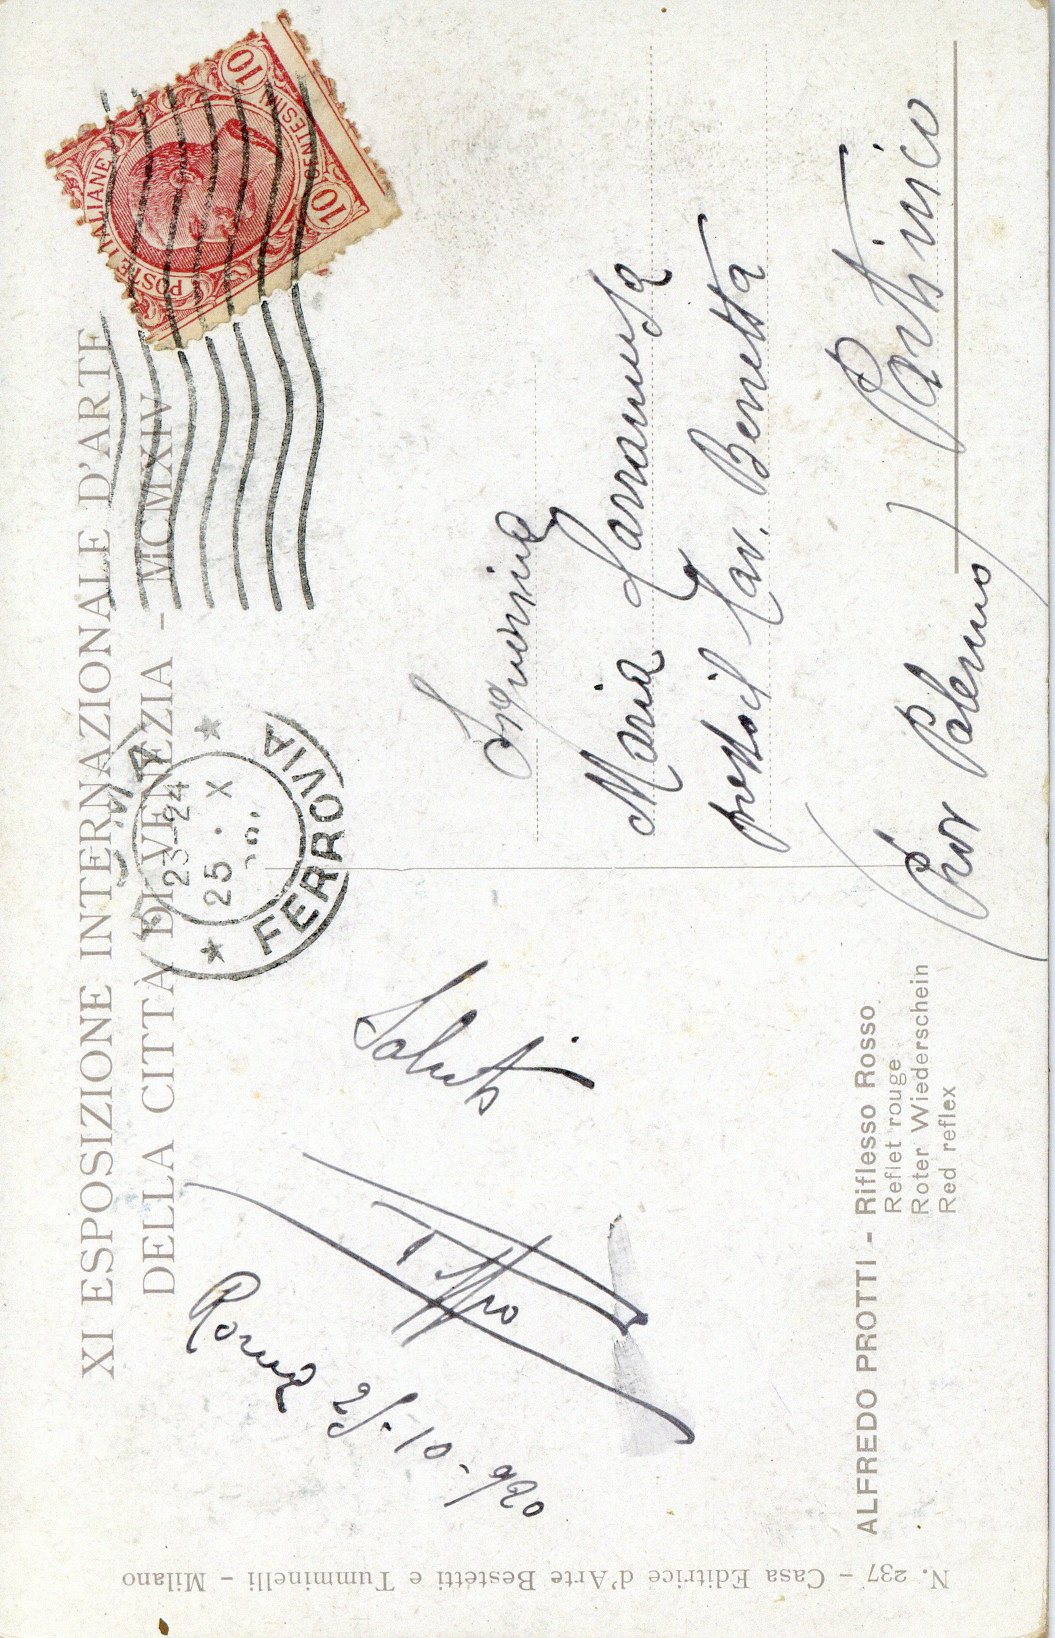 XI ESPOSIZIONE INTERNAZIONALE D'ARTE
DELLA CITTÀ DI VENEZIA - MCMXIV
POSTE ITALIANE
10 CENTESIMI 10
ROMA
23-24
25 · X
FERROVIA
Saluti
Roma 25-10-920
Signorina
Maria Carramusa
presso il Cav. Benetta
Partinico
(Prov Palermo)
ALFREDO PROTTI - Riflesso Rosso
Reflet rouge
Roter Wiederschein
Red reflex
N. 237 - Casa Editrice d'Arte Bestetti e Tumminelli - Milano